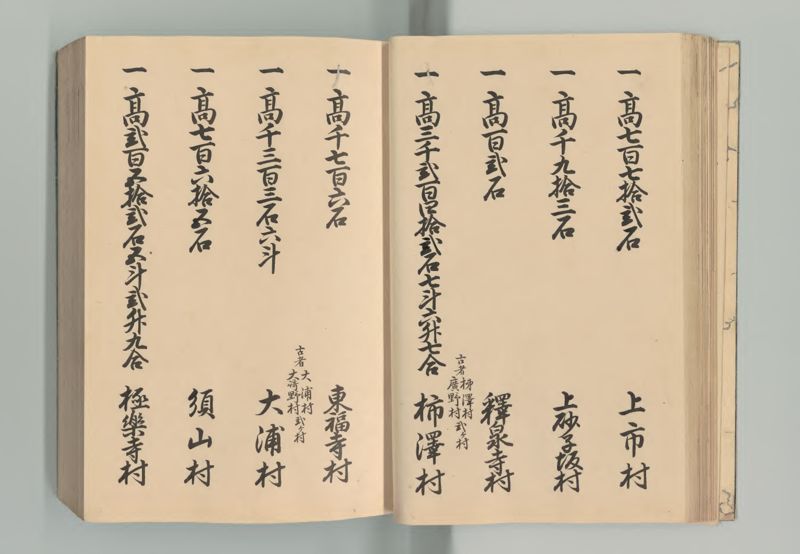 一 高七百七拾弐石 上市村
一 高千九拾三石 上砂子坂村
一 高百弐石 釋泉寺村
一 高三千弐百四拾弐石七斗六升七合 古者 柿澤村 廣野村 弐ヶ村 柿澤村
一 高千七百六石 東福寺村
一 高千三百三石六斗 古者 大浦村 野村 弐ヶ村 大浦村
一 高七百六拾五石 須山村
一 高弐百五拾弐石五斗弐升九合 極樂寺村